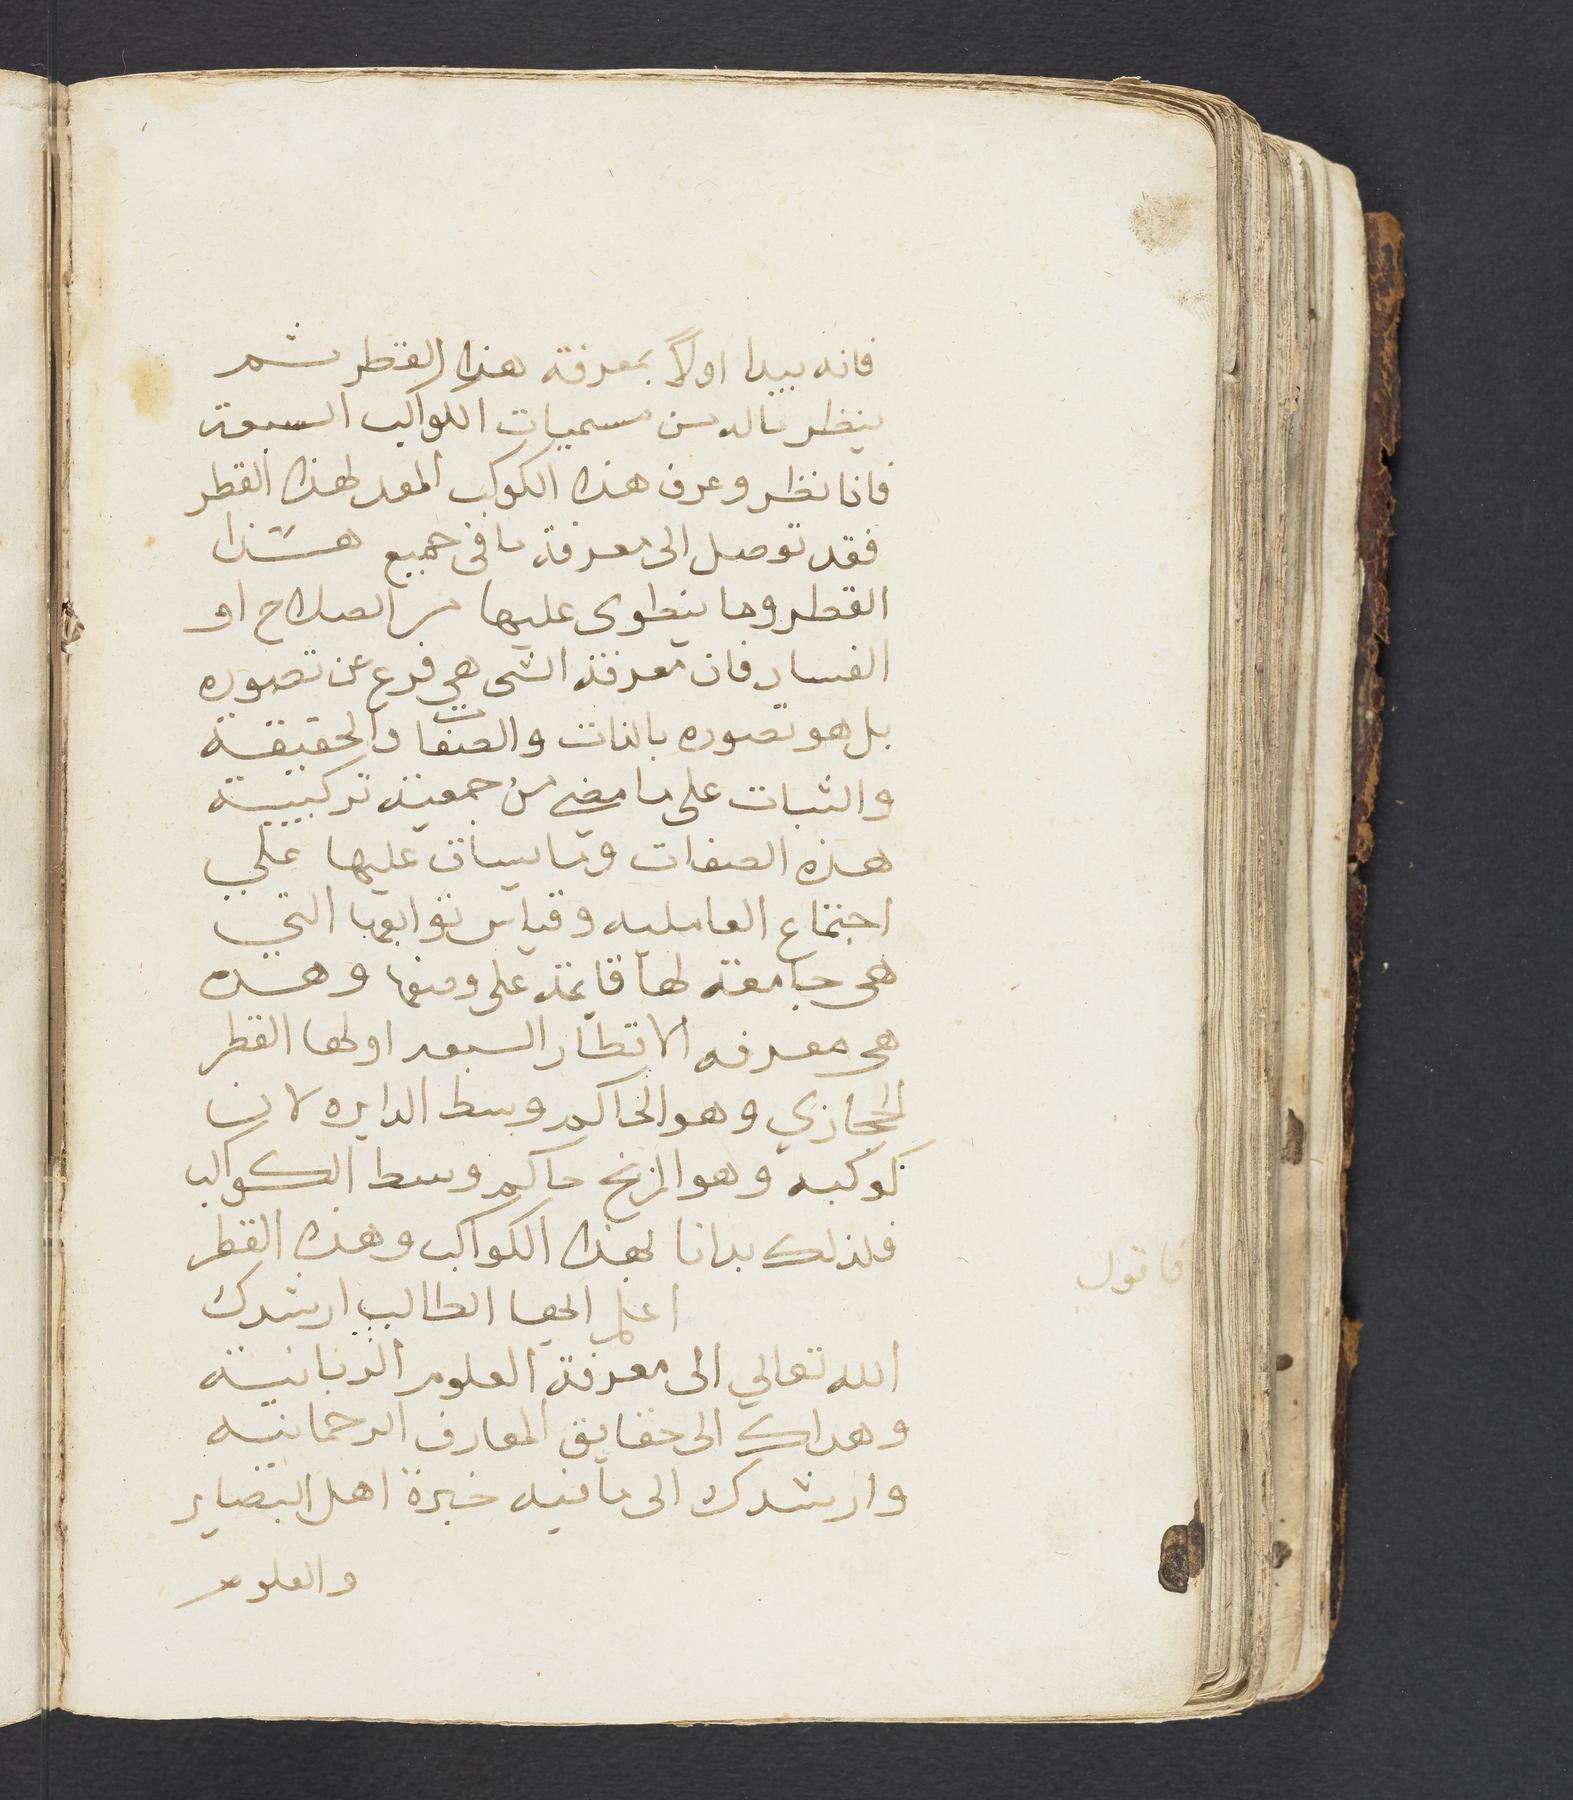 فانه يبدا اولاً بمعرفة هذا القطر ثم
ينظر ماله من مسميات الكواكب السبعة
فاذا نظر وعرف هذا الكوكب المعد لهذا القطر
فقد توصل الى معرفة ما فى جميع هذا
القطر وما ينطوى عليها من الصلاح او
الفساد فان معرفة الشى هي فرع عن تصوره
بل هو تصوره بالذات والصفات والحقيقة
والثبات على ما مضى من جمعية تركيبية
هذه الصفات وما يساق عليها على
اجتماع العامليه وقياس توابعها التي
هى جامعة لها قايمة على وضعها وهذه
هى معرفه الاقطار السبعه اولها القطر
الحجازي وهو الحاكم وسط الدايره لان
كوكبه وهو المريخ حاكم وسط الكواكب
فلذلك بدانا بهذا الكواكب وهذا القطر
فاقول
اعلم ايها الطالب ارشدك
الله تعالي الى معرفة العلوم الربانية
وهداك الى حقايق المعارف الرحمانيه
وارشدك الى ما فيه خبرة اهل البصاير
والعلوم